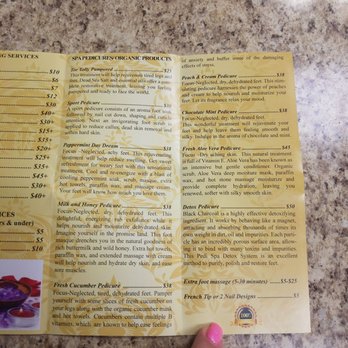 NG SERVICES
$10
$6
$7
$12
$30
$25+
$15+
$20+
$30+
$35+
$45+
$30+
$40+
ICES
rs & under)
$5
$5
$10
SPA PEDICURES/ORGANIC PRODUCTS
Toe Tally Pampered $25
This treatment will help rejuvenate tired legs and
Sport Pedicure
A sport pedicure consists of an aroma foot soak,
followed by nail cut down, shaping and cuticle
removal. Next an invigorating foot scrub is
applied to reduce callus, dead skin removal and
soften hard skin.
Peppermint Day Dream
Focus-Neglected, achy feet. This rejuvenating
treatment will help reduce swelling. Get total
refreshment for weary feet with this sensational
treatment. Cool and reenergize with a blast of
cooling peppermint soak, scrub, masque, extra
hot towels, paraffin wax, and massage cream.
Your feet will know how much you love them.
Milk and Honey Pedicure $38
Focus-Neglected, dry, dehydrated feet. This
delightful, energizing rub exfoliates while it
helps nourish and moisturize dehydrated skin.
Imagine yourself in the promise land. This foot
masque drenches you in the natural goodness of
rich buttermilk and wild honey. Extra hot towels,
paraffin wax, and extended massage with cream
will help nourish and hydrate dry skin, and ease
sore muscles
Fresh Cucumber Pedicure $38
Focus-Neglected, tired, dehydrated feet. Pamper
yourself with some slices of fresh cucumber on
your legs along with the organic cucumber mask
and hot towels. Cucumbers contains multiple B
vitamins, which are known to help ease feelings
of anxiety and buffer some of the damaging
effects of stress.
Peach & Cream Pedicure $38
Focus-Neglected, dry, dehydrated feet. This stimulating
pedicure harnesses the power of peaches
and cream to help nourish and moisturize your
feet. Let its fragrance relax your mood.
Chocolate Mint Pedicure $38
Focus-Neglected, dry, dehydrated feet.
This wonderful treatment will rejuvenate your
feet and help leave them feeling smooth and
silky. Indulge in the aroma of chocolate and mint.
Fresh Aloe Vera Pedicure $45
Focus This aching skin. This natural treatment
is full of Vitamin E. Aloe Vera has been known as
an intensive but gentle conditioner. Organic
scrub, Aloe Vera deep moisture mask, paraffin
wax, and hot stone massage moisturizer and
provide complete hydration, leaving you
renewed, softer with silky smooth skin.
Detox Pedicure $50
Black Charcoal is a highly effective detoxifying
ingredient. It works by behaving like a magnet,
attracting and absorbing thousands of times its
own weight in dirt, oil and impurities. Each particle
has an incredible porous surface area, allowing
it to bind with many toxins and impurities.
This Pedi Spa Detox System is an excellent
method to purify, polish and restore feet.
Extra foot massage (5-30 minutes) $5-$25
French Tip or 2 Nail Designs $5